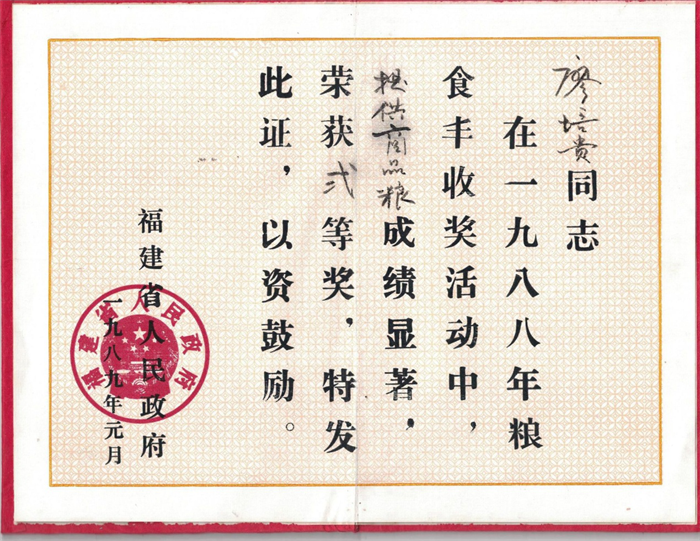 廖培贵同志
在一九八八年粮
食丰收奖活动中，
提供商品粮成绩显著，
荣获弍等奖，特发
此证，以资鼓励。
福建省人民政府
一九八九年元月
福建省人民政府